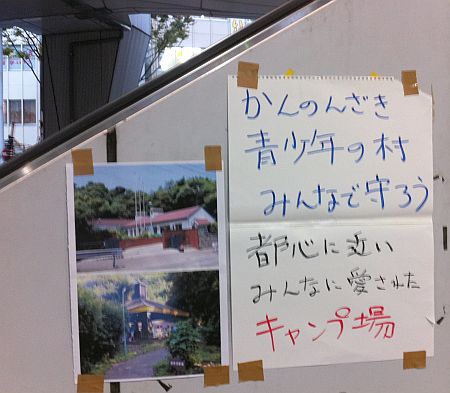 かんのんざき
青少年の村
みんなで守ろう
都心に近い
みんなに愛された
キャンプ場